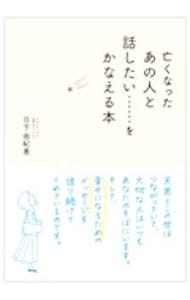 亡くなった
あの人と
話したい……を
かなえる本
日下由紀恵
天界とこの世は
つながっていて、
大切な人はいつも
あなたのそばにいます。
そして、
幸せになるための
メッセージを
送り続けて
くれているのです。